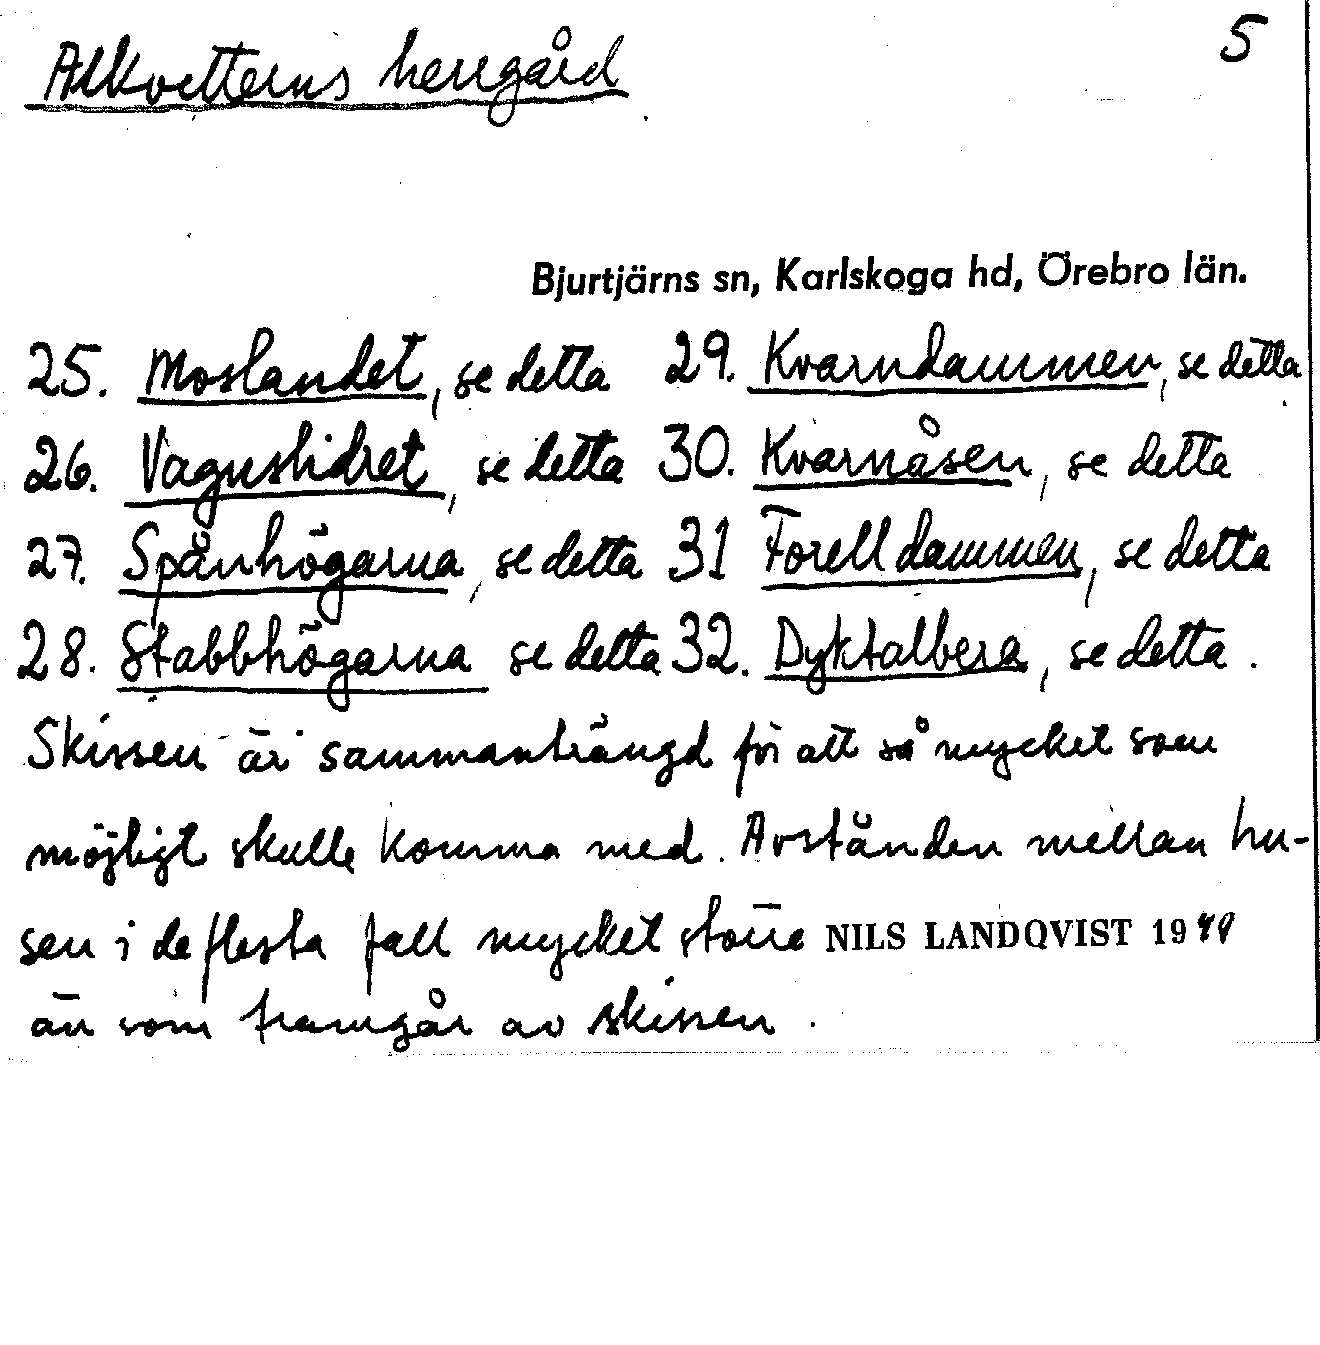 Alkvetterns herrgård 5
Bjurtjärns sn, Karlskoga hd, Örebro län.
25. Moslandet, se detta 29. Kvarndammen, se detta
26. Vagnslidret, se detta 30. Kvarnåsen, se detta
27. Spånhögarna, se detta 31 Forelldammen, se detta
28. Stabbhögarna se detta 32. Dyktalberg, se detta.
Skissen är sammanträngd för att så mycket som
möjligt skulle komma med. Avstånden mellan hu-
sen i de flesta fall mycket större NILS LANDQVIST 19
än som framgår av skissen.